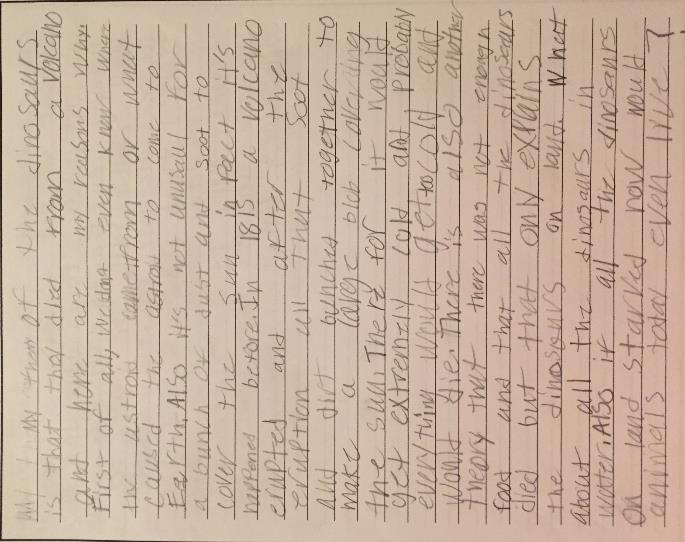 my theory of the dinosaurs
is that they died from a volcano
and here are my reasons why.
First of all, we dont even know where
the astroid came from or what
caused the astroid to come to
Earth. Also it's not unusaul for
a bunch of dust and soot to
cover the sun in fact it's
happened before. In 1815 a volcano
erupted and after the
eruption all that soot
and dirt bunched together to
make a large blob covering
the sun. There for it would
get extremely cold and probably
everything would get too cold and
would die. There is also another
theory that there was not enough
food and that all the dinosaurs
died but that only explains
the dinosaurs on land. What
about all the dinosaurs in
water. Also if all the dinosaurs
on land starved how would
animals today even live?